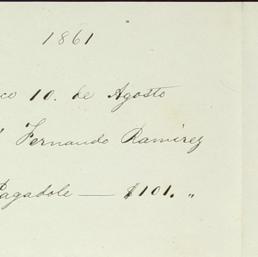 1861
co 10. de Agosto
Fernando Ramirez
Pagadole — $101. "